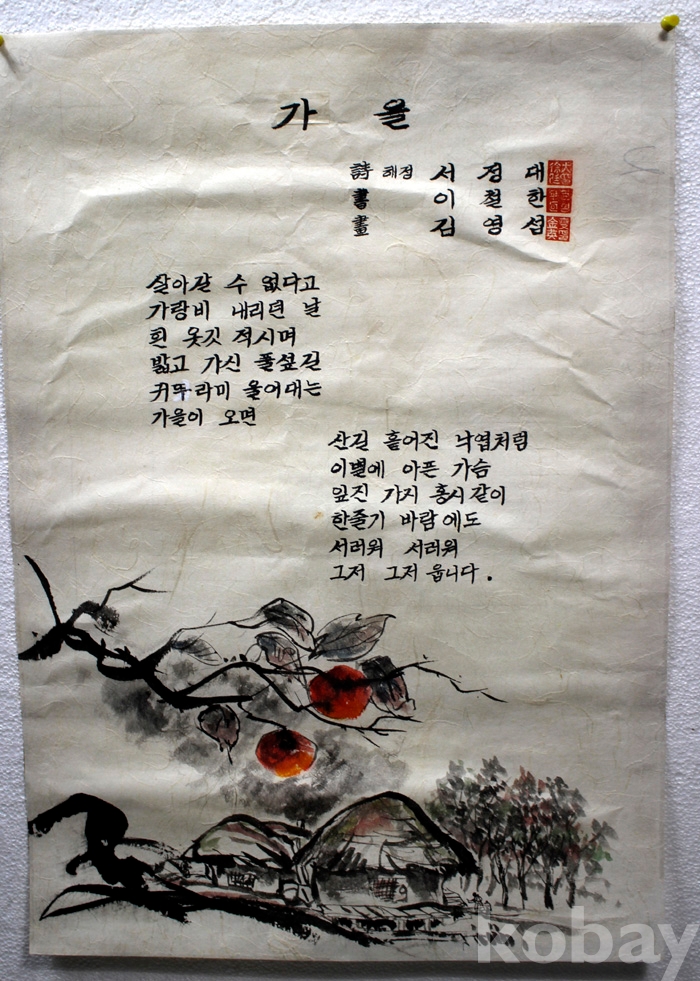 가 을
詩 혜정 서 경 대
書 이 철 한
畫 김 영 섭
살아갈 수 없다고
가랑비 내리던 날
흰 옷깃 적시며
밟고 가신 풀섶길
귀뚜라미 울어대는
가을이 오면
산길 흩어진 낙엽처럼
이별에 아픈 가슴
잎진 가지 홍시같이
한줄기 바람에도
서러워 서러워
그저 그저 웁니다.
kobay